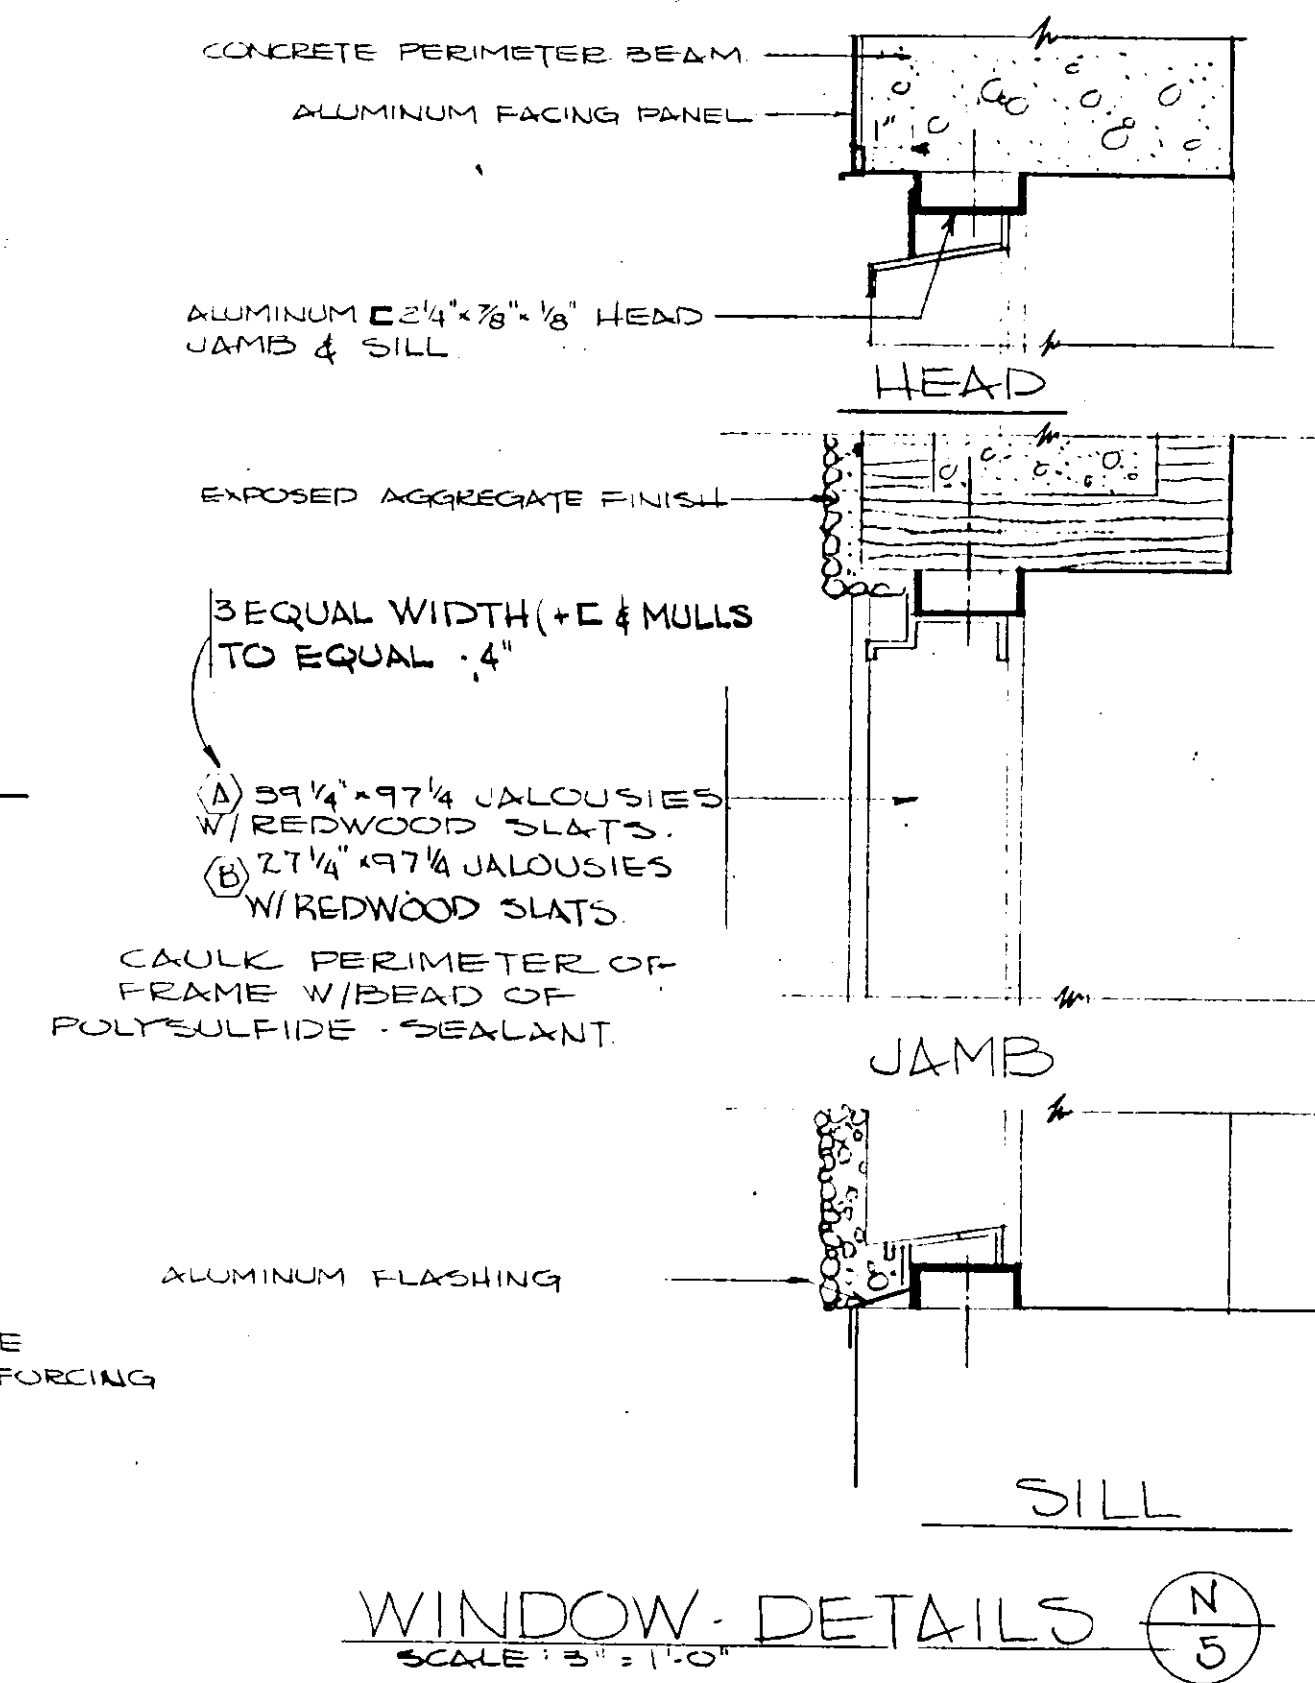 CONCRETE PERIMETER BEAM
ALUMINUM FACING PANEL
1"
ALUMINUM [ 2 1/4" x 7/8" x 1/8" HEAD
JAMB & SILL
HEAD
EXPOSED AGGREGATE FINISH
3 EQUAL WIDTH (+ [ & MULLS
TO EQUAL 4"
A 39 1/4" x 97 1/4 JALOUSIES
W/ REDWOOD SLATS.
B 27 1/4" x 97 1/4 JALOUSIES
W/ REDWOOD SLATS.
CAULK PERIMETER OF
FRAME W/BEAD OF
POLYSULFIDE SEALANT.
JAMB
ALUMINUM FLASHING
E
FORCING
SILL
WINDOW DETAILS
SCALE: 3" = 1'-0"
N
5